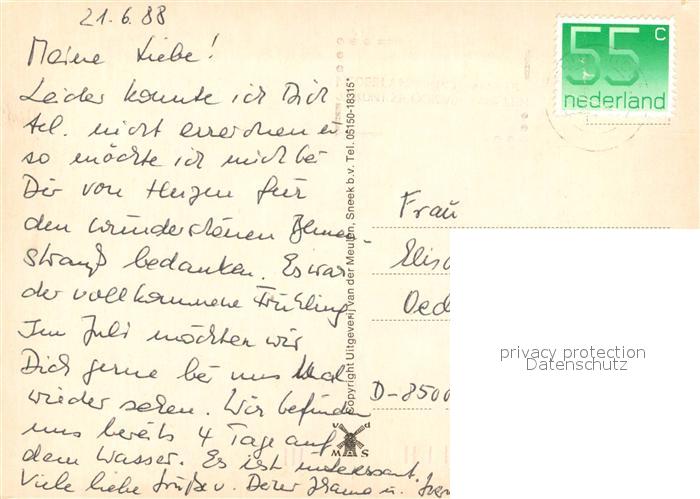 21.6.88
Meine Liebe!
Leider konnte ich Dich
tel. nicht erreichen u.
so möchte ich mich bei
Dir von Herzen für
den wunderschönen Blumen-
strauß bedanken. Es war
der vollkommene Frühling
Im Juli möchten wir
Dich gerne bei uns
wieder sehen. Wir befinden
uns bereits 4 Tage auf
dem Wasser. Es ist interessant.
Viele liebe Grüße v. Deiner u.
Copyright Uitgeverij van der Meulen, Sneek b.v. Tel. 05150-18315*
v d
S M
55 c
nederland
Frau
Elis
Oed
D-8500
privacy protection
Datenschutz